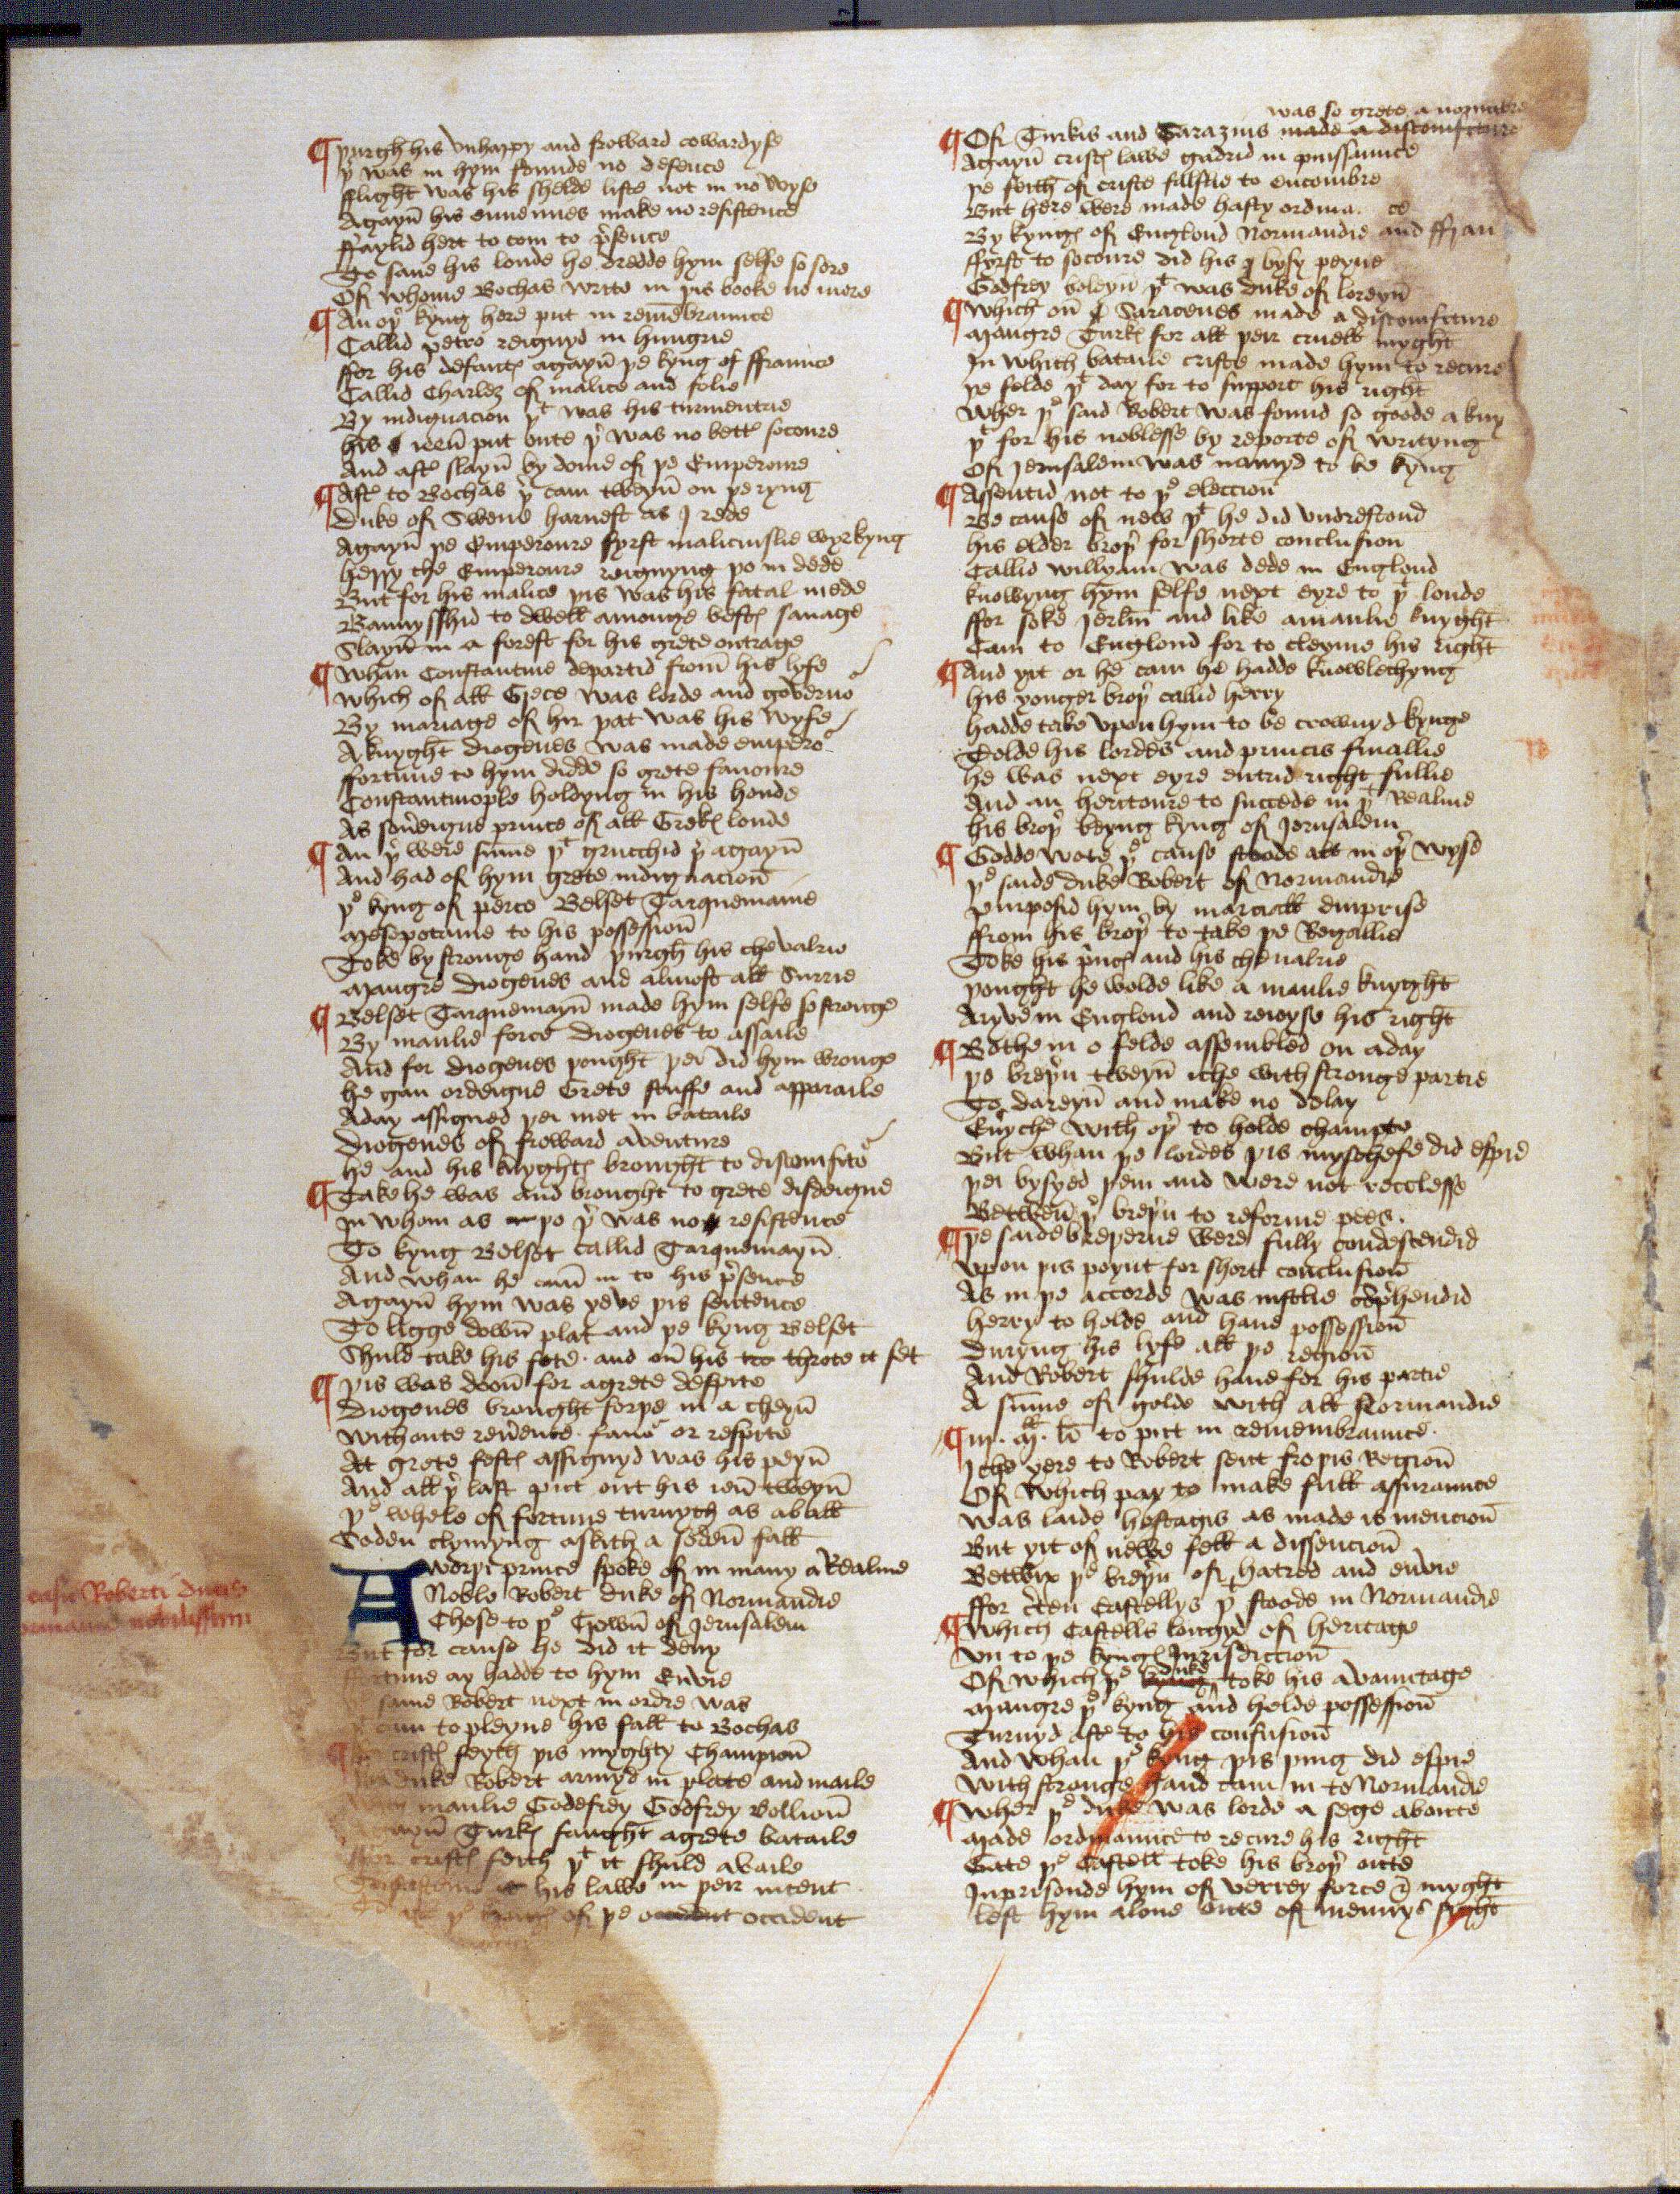 ¶ þurgh his vnhappy and froward cowardyse
þ͛ was in hym founde no defence
fflight was his shelde liste not in no wyse
Agayn̄ his ennemies make no resistence
ffaylid hert to com to p͛sence
To saue his londe he dredde hym selfe so sore
Of whome Bochas write in þis booke no more
¶ An oþ͛ kyng here put in remēbraunce
Callid petro reignyd in hungrie
ffor his defautꝭ agayn̄ þe kyng of ffraunce
Callid Charles of malice and folie
By indignacion þͭ was his turmentrie
his ieen̄ put oute þ͛ was no bett͛ socoure
And aft͛ slayn̄ by dome of þe Emperoure
¶ Aft͛ to Bochas þ͛ cam tweyn̄ on þe ryng
Duke of Sweue harnest as I rede
Agayn̄ þe Emperoure fyrst maliciuslie wyrkyng
herry the Emperoure reignyng þo in dede
But for his malice þis was his fatal mede
Bannysshid to dwell amonge bestꝭ sauage
Slayn̄ in a forest for his grete outrage
¶ Whan Constantine departid from̄ his lyfe
Which of all Grece was lorde and gouerno͛
By mariage of hir þat was his wyfe
A knyght diogenes was made empero͛
fortune to hym didde so grete fauoure
Constantinople holdyng in his honde
As sou͛eigne prince of all Grekꝭ londe
¶ An þ͛ were sūme þͭ grucchid þ͛ agayn̄
And had of hym grete indignacion̄
þͤ kyng of perce Belset Tarquemaine
Mesopotaine to his possession̄
Toke by stronge hand þurgh his chevalrie
Maugre Diogenes and almost all Surrie
¶ Belset Tarquemayn̄ made hym selfe so stronge
By manlie force diogenes to assaile
And for diogenes þought þei did hym wronge
he gan ordeigne Grete stuffe and apparaile
Aday assigned þei met in bataile
Diogenes of froward aventure
he and his knyghtꝭ brought to discomfito͛
¶ Take he was and brought to grete disdeigne
In whom as þo þ͛ was no resistence
To kyng Belset callid Tarquemayn̄
And whan he cam̄ in to his p͛sence
Agayn̄ hym was yeve þis sentence
To ligge down̄ plat and þe kyng Belset
Shuld take his fote and on̄ his too throte it set
¶ þis was doon̄ for agrete despite
Diogenes brought forþe in a cheyn̄
withoute reu͛ence fauo͛ or respite
At grete festꝭ assignyd was his peyn̄
And all þ͛ last put out his ien̄ tweyn̄
þͤ whele of fortune turnyth as aball
Soden clymyng askith a soden̄ fall
A worþi prince spoke of in many a Realme
Noble Robert duke of Normandie
Chose to þͤ Crown̄ of Jerusalem
But for cause he did it deny
tune ay hadde to hym Envie
same Robert next in ordre was
cam to pleyne his fall to Bochas
¶ cristꝭ feyth þis myghty Champion̄
duke Robert armyd in plate and maile
manlie Godefrey Godfrey Bollion̄
ayn̄ Turkꝭ faught agrete bataile
for cristꝭ feith þͭ it shuld availe
his lawe in þeir intent
of þe occident occident
casu Roberti ducis
ormannie nobilissimi
was so grete a nombre
¶ Of Turkis and Sarazins made a discomfiture
Agayn̄ cristꝭ lawe gadrid in puissaunce
þe feith of criste falslie to encombre
But here were made hasty ordina ce
By kyngꝭ of Englond Normandie and ffran
ffyrst to socoure did his bysy peyne
Godfrey boleyn̄ þͭ was duke of loreyn̄
¶ Which on̄ Saracenes made a discomfiture
Maugre Turkꝭ for all þeir cruell myght
In which bataile criste made hym to recure
þe felde þͭ day for to support his right
Wher þͤ said Robert was found so goode a kny
þͭ for his noblesse by reporte of writyng
Of Jerusalem was namyd to be kyng
¶ Assentid not to þͤ eleccion̄
Be cause of new þͭ he did vndrestond
his elder broþ͛ for shorte conclusion
Callid willyam was dede in Englond
knowyng hym selfe next eyre to þͭ londe
ffor soke Jerlm̄ and like amanlie knyght
Cam to Englond for to cleyme his right
¶ And yit or he cam he hadde knowlechyng
his yonger broþ͛ callid herry
hadde take vpon hym to be crownyd kynge
Tolde his lordes and princis finallie
he was next eyre entrid right fullie
And an heritoure to succede in þͭ Realme
his broþ͛ beyng kyng of Jerusalem
¶ Godde wote þͤ cause stoode all in oþ͛ wyse
þͤ saide duke Robert of Normandie
purposid hym by marciall emprise
ffrom his broþ͛ to take þe Regallie
Toke his p͛ncꝭ and his chevalrie
þought he wolde like a manlie knyght
Aryve in Englond and reioyse his right
¶ Bothe in o felde assembled on aday
þe breþ͛n tweyn̄ iche with stronge partie
To dareyn̄ and make no delay
Eu͛yche with oþ͛ to holde champto
But whan þe lordes þis myschefe did espie
þei bysyed þem and were not recclesse
Betwen̄ þͤ breþ͛n to reforme pees.
¶ þe saide breþerne were fully condescendid
Vpon þis poynt for short conclusion̄
As in þe accorde was iustlie cōp͛hendid
Herry to holde and haue possession̄
Duryng his lyfe all þe region̄
And Robert shulde haue for his partie
A sūme of golde with all Normandie
¶ iij. Ml. li to put in remembraunce.
Iche yere to Robert sent fro þis Region̄
Of which pay to make full assuraunce
was laide hostagis as made is mencion̄
But yit of newe fell a dissencion̄
Betwix þͤ breþ͛n of hatred and envie
ffor c͛ten Castellys þͭ stoode in Normandie
¶ Which Castells longyd of heritage
vn to þe kyngꝭ Jurisdiccion̄
Of which þͤ duke toke his avauntage
Maugre þͤ kyng and holde possession̄
Turnyd aft͛ to his confusion̄
And whan þͤ kyng þis þing did espie
With stronge hand cam in to Normandie
¶ Wher þͤ duke was lorde a sege aboute
Made ordinaunce to recure his right
Gate þͤ Castell toke his broþ͛ oute
Inprisonde hym of verrey force & myght
left hym alone oute of mennys syght